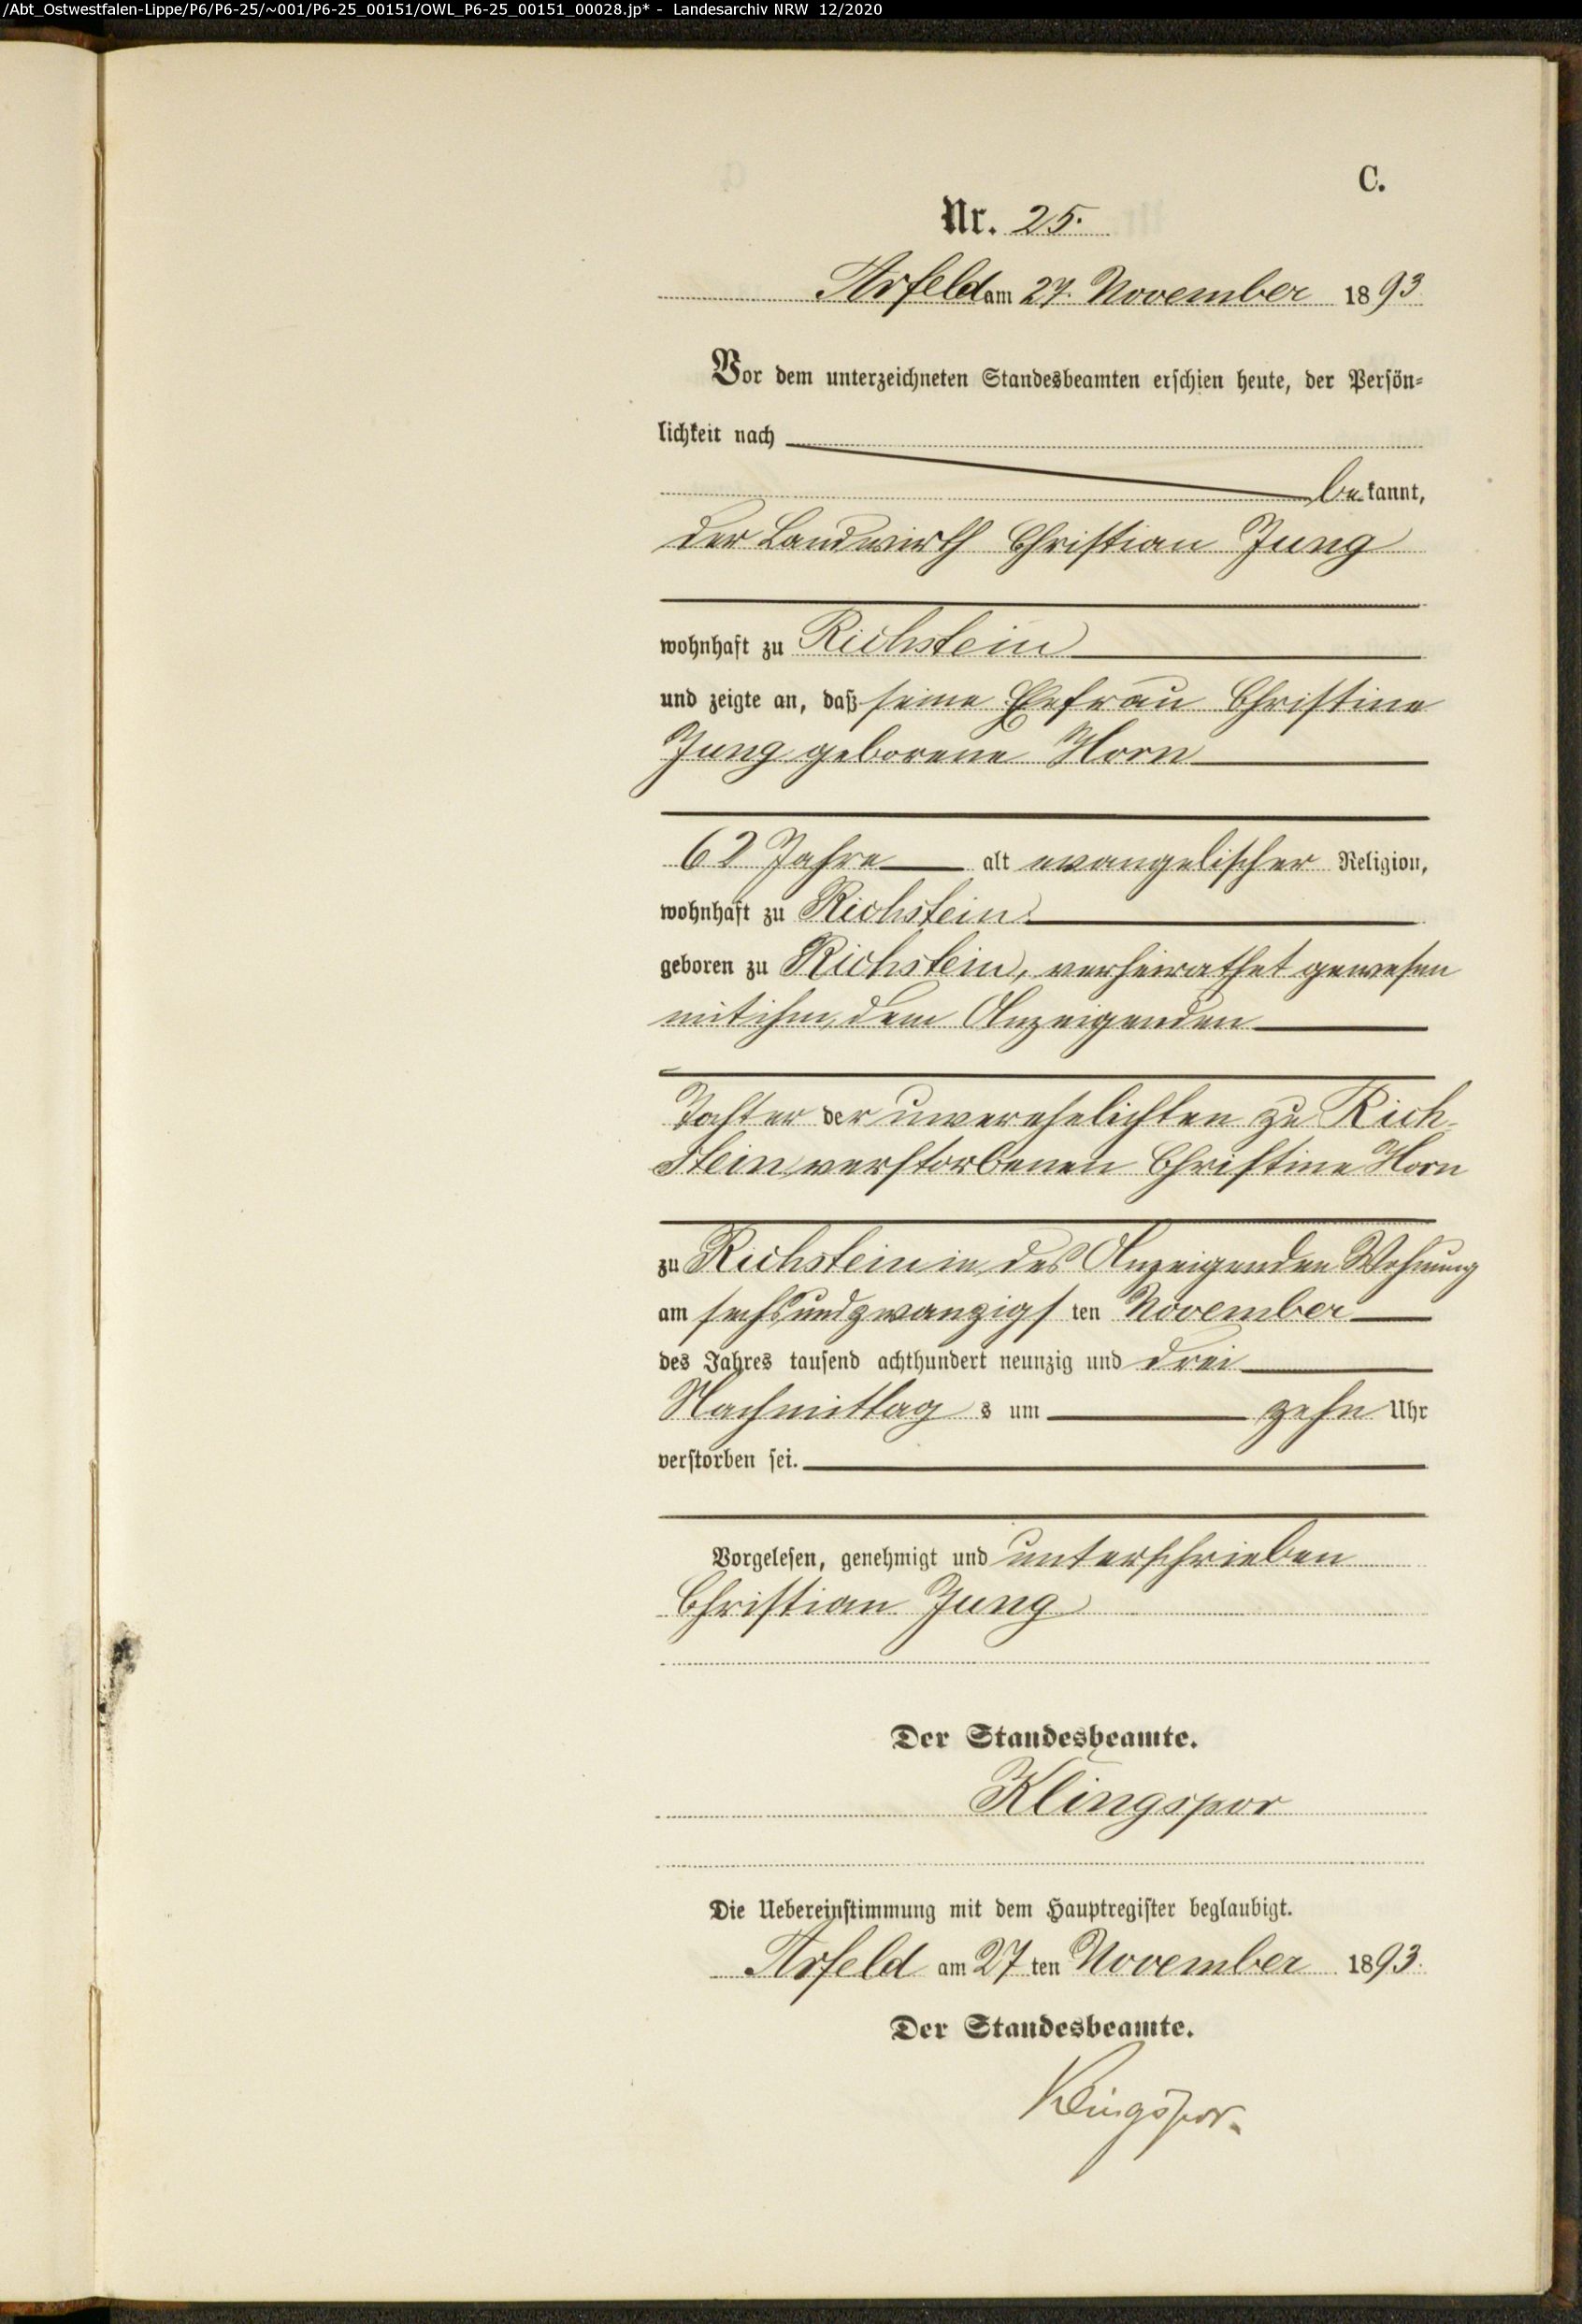 /Abt_Ostwestfalen-Lippe/P6/P6-25/~001/P6-25_00151/OWL_P6-25_00151_00028.jp* - Landesarchiv NRW 12/2020
C.
Nr. 25.
Arfeld am 27. November 1893
Vor dem unterzeichneten Standesbeamten erschien heute, der Persön-
lichkeit nach
bekannt,
der Landwirth Christian Jung
wohnhaft zu Richstein
und zeigte an, daß seine Ehefrau Christine
Jung geborene Horn
62 Jahre alt evangelischer Religion,
wohnhaft zu Richstein
geboren zu Richstein, verheirathet gewesen
mit ihm, dem Anzeigenden
Tochter der unverehelichten zu Rich-
stein verstorbenen Christine Horn
zu Richstein in des Anzeigenden Wohnung
am sechsundzwanzigsten November
des Jahres tausend achthundert neunzig und drei
Nachmittags um zehn Uhr
verstorben sei.
Vorgelesen, genehmigt und unterschrieben
Christian Jung
Der Standesbeamte.
Klingspor
Die Uebereinstimmung mit dem Hauptregister beglaubigt.
Arfeld am 27ten November 1893.
Der Standesbeamte.
Klingspor.